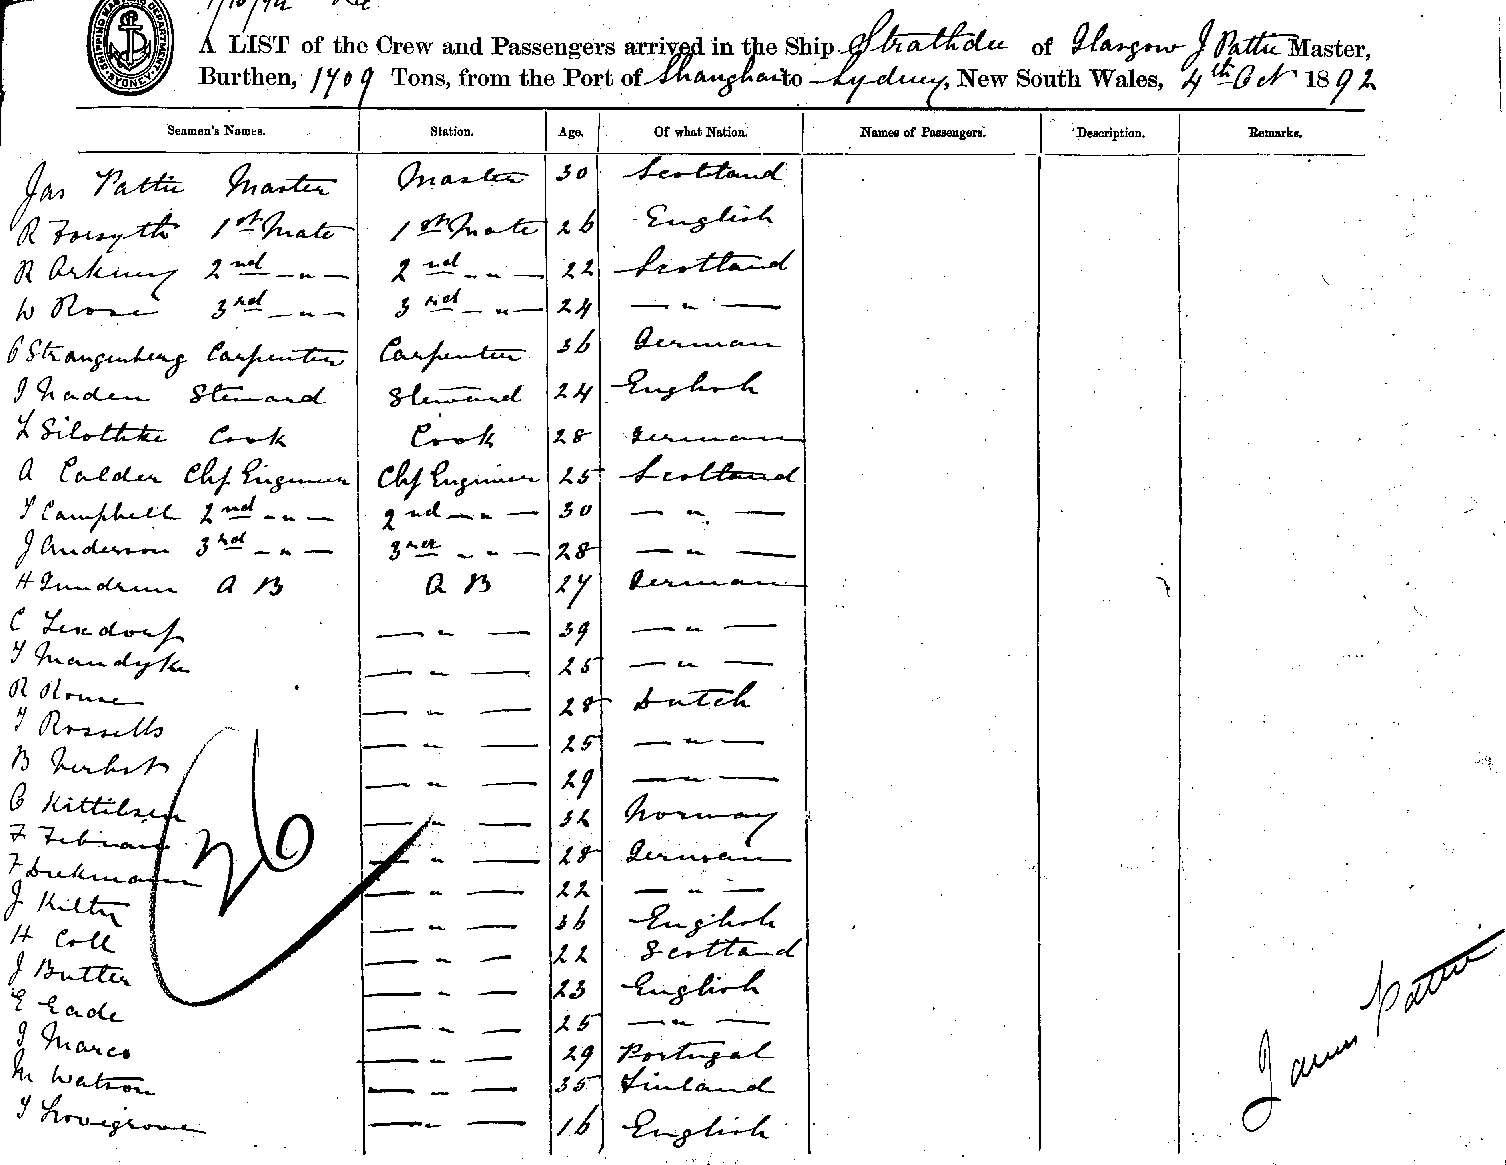 A LIST of the Crew and Passengers arrived in the Ship Strathdee of Glasgow J Pattie Master,
Burthen, 1709 Tons, from the Port of Shanghai to Sydney, New South Wales, 4th Oct 1892
Seamen's Names. Station. Age. Of what Nation. Names of Passengers. Description. Remarks.
Jas Pattie Master Master 30 Scotland
R Forsyth 1st Mate 1st Mate 26 English
R Orkney 2nd - " - 2nd - " - 22 Scotland
W Rose 3rd - " - 3rd - " - 24 - " -
Strangenberg Carpenter Carpenter 36 German
J Naden Steward Steward 24 English
L Silothke Cook Cook 28 German
A Calder Chf Engineer Chf Engineer 25 Scotland
T Campbell 2nd - " - 2nd - " - 30 - " -
J Anderson 3rd - " - 3rd - " - 28 - " -
H Gundrum A B A B 27 German
C Lexdorf - " - 39 - " -
T Mandyke - " - 25 - " -
R Rouse - " - 28 Dutch
T Rossells - " - 25 - " -
B Herbst - " - 29 - " -
C Kittilsen - " - 32 Norway
F Febrian - " - 28 German
F Diekmann - " - 22 - " -
J Kilty - " - 36 English
H Coll - " - 22 Scotland
J Butter - " - 23 English
E Eade - " - 25 - " -
J Marco - " - 29 Portugal
M Watson - " - 35 Finland
T Lovegrove - " - 16 English
26
James Pattie